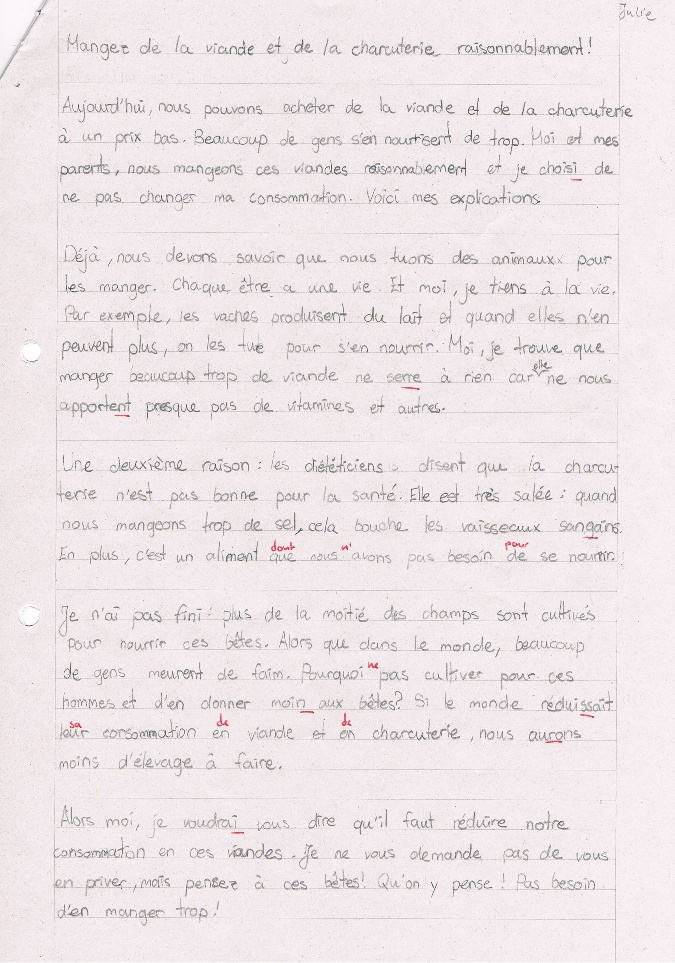 Julie
Mangez de la viande et de la charcuterie raisonnablement!
Aujourd'hui, nous pouvons acheter de la viande et de la charcuterie
à un prix bas. Beaucoup de gens s'en nourtisent de trop. Moi et mes
parents, nous mangeons ces viandes raisonnablement et je choisi de
ne pas changer ma consommation. Voici mes explications
Déjà, nous devons savoir que nous tuons des animaux pour
les manger. Chaque être a une vie. Et moi, je tiens à la vie.
Par exemple, les vaches produisent du lait et quand elles n'en
peuvent plus, on les tue pour s'en nourrir. Moi, je trouve que
elle
manger beaucoup trop de viande ne serre à rien car ne nous
apportent presque pas de vitamines et autres.
Une deuxième raison : les diététiciens disent que la charcu-
terie n'est pas bonne pour la santé. Elle est très salée : quand
nous mangeons trop de sel, cela bouche les vaisseaux sangains.
dont n' pour
En plus, c'est un aliment que nous avons pas besoin de se nourrir.
Je n'ai pas fini : plus de la moitié des champs sont cultivés
pour nourrir ces bêtes. Alors que dans le monde, beaucoup
ne
de gens meurent de faim. Pourquoi pas cultiver pour ces
hommes et d'en donner moin aux bêtes? Si le monde réduissait
sa de de
leur consommation en viande et en charcuterie, nous aurons
moins d'élevage à faire.
Alors moi, je voudrai vous dire qu'il faut réduire notre
consommation en ces viandes. Je ne vous demande pas de vous
en priver, mais pensez à ces bêtes! Qu'on y pense! Pas besoin
d'en manger trop!